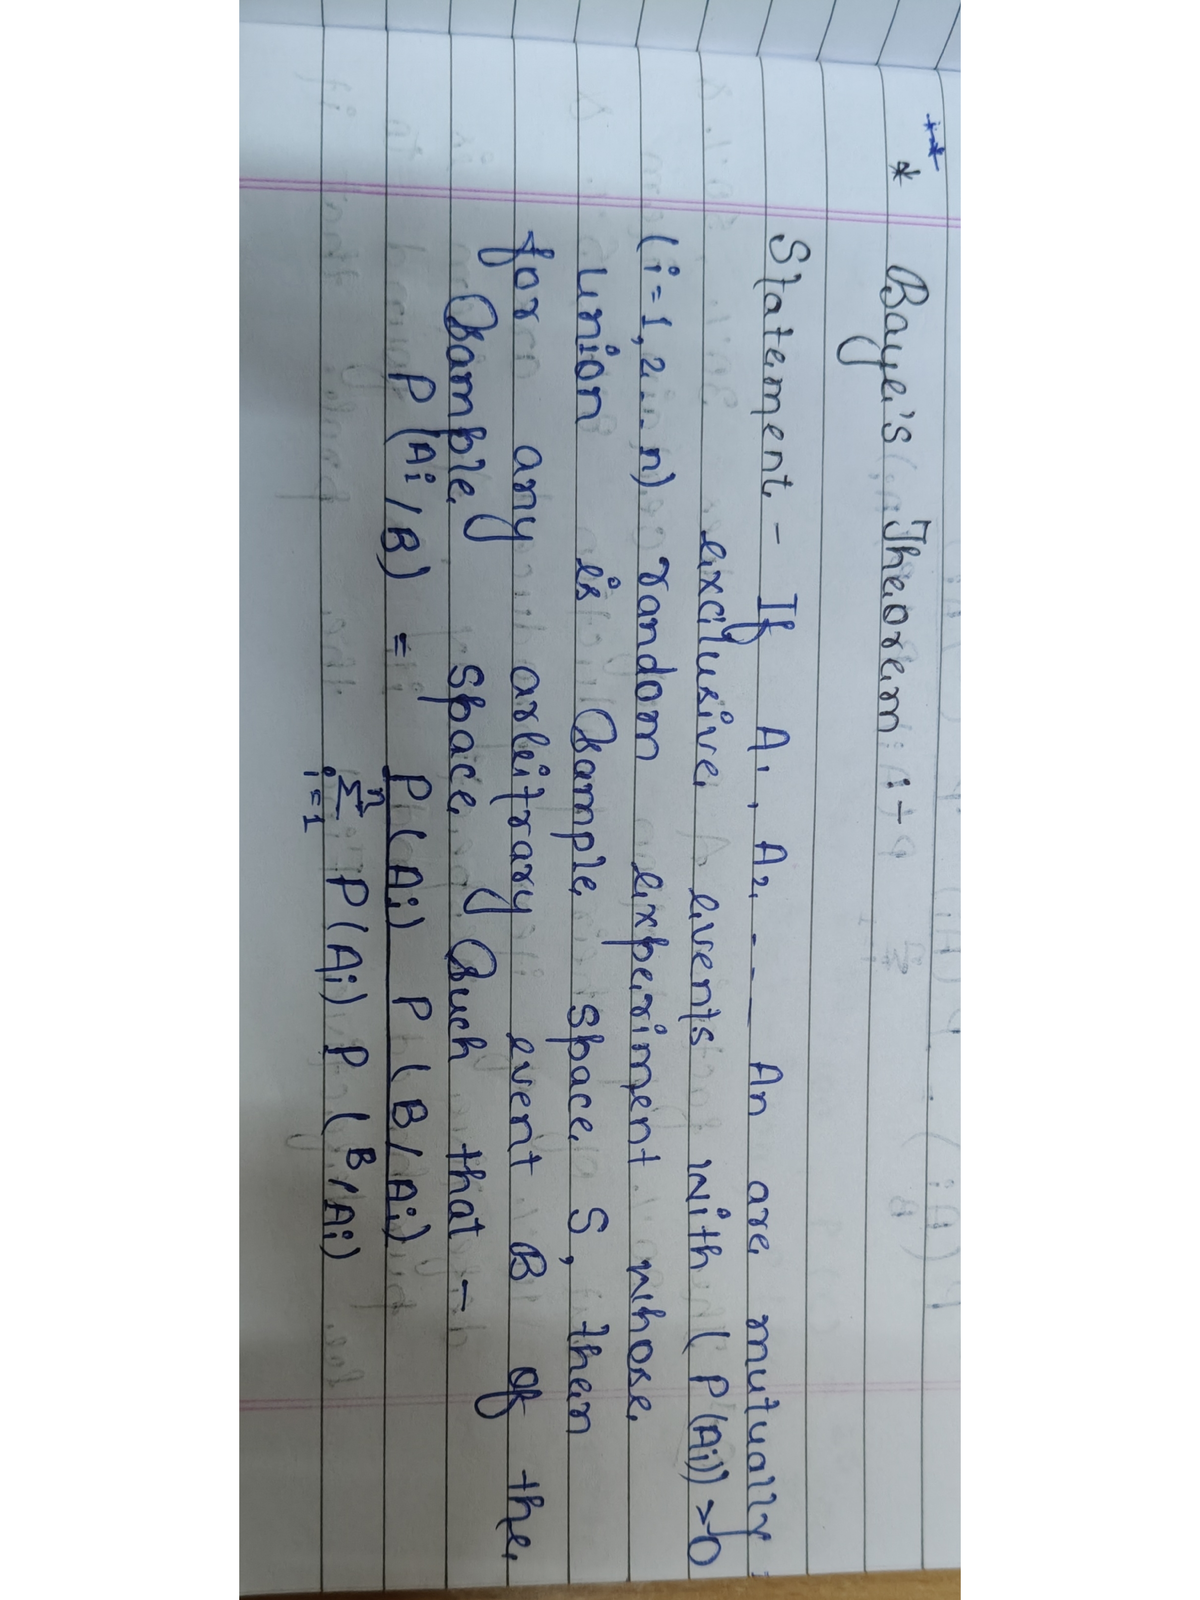 * Baye's Theorem :-
Statement - If A1, A2, - - - An are mutually
exclusive events with (P(Ai)) > 0
(i = 1, 2 .. n) random experiment whose
union is Sample space S, then
for any arbitrary event B of the
Sample space Such that -
P (Ai / B) = P (Ai) P (B / Ai)
n
Σ P (Ai) P (B / Ai)
i = 1